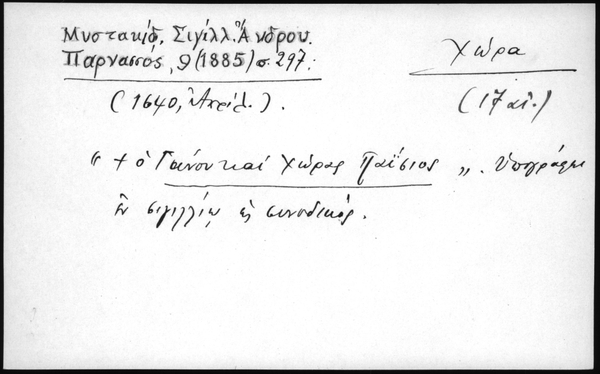 Μυστακίδ. Σιγίλλ. Ἄνδρου.
Παρνασσός, 9 (1885) σ. 297.
Χώρα
(1640, Ἀπρίλ.).
(17 αἰ.)
" + ὁ Γάνου καὶ Χώρας Παΐσιος ". Ὑπογράφει
ἐν σιγιλλίῳ ὡς συνοδικός.